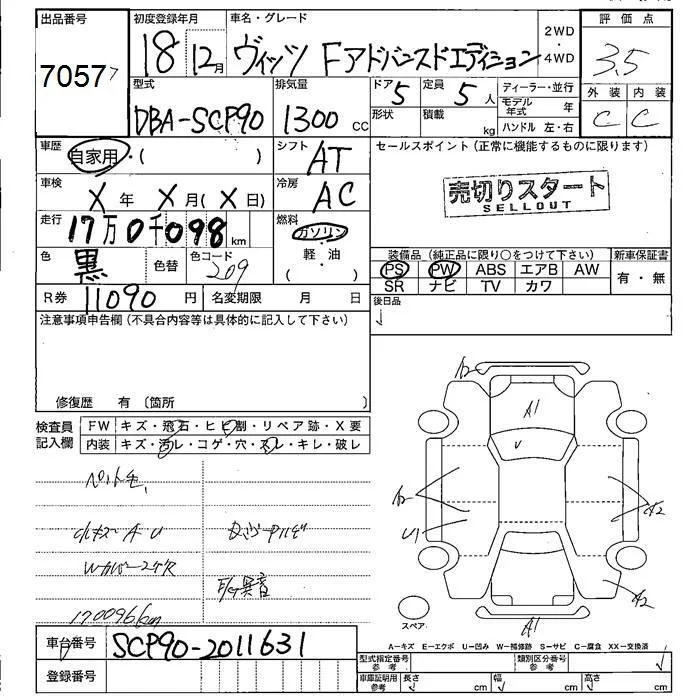 出品番号
7057
初度登録年月
18 12月
車名・グレード
ヴィッツ Fアドバンスドエディション
2WD
4WD
評価点
3.5
外装 内装
C C
型式
DBA-SCP90
排気量
1300 CC
ドア 5
形状
定員 5 人
積載 kg
ディーラー・並行
モデル年式 年
ハンドル 左・右
車歴
自家用・( )
シフト
AT
セールスポイント (正常に機能するものに限ります)
売切りスタート
SELLOUT
車検
X 年 X 月 (X 日)
冷房
AC
走行
17万0千098 km
燃料
ガソリン
軽・油
( )
色
黒
色替
色コード
209
装備品 (純正品に限り○をつけて下さい)
新車保証書
PS PW ABS エアB AW
SR ナビ TV カワ
有・無
R券 11090 円
名変期限 月 日
後日品
注意事項申告欄 (不具合内容等は具体的に記入して下さい)
修復歴 有 〔箇所 〕
検査員記入欄
FW キズ・飛石・ヒビ割・リペア跡・X要
内装 キズ・汚レ・コゲ・穴・スレ・キレ・破レ
ペット毛
小キズ A U
Wカバースリキズ
異音
170096km
A2
A1
A2
A2
U1
A2
A1
スペア
A-キズ E-エクボ U-凹み W-補修跡 S-サビ C-腐食 XX-交換済
車台番号
SCP90-2011631
登録番号
型式指定番号
参考
類別区分番号
参考
車庫証明用
参考
長さ cm 幅 cm 高さ cm